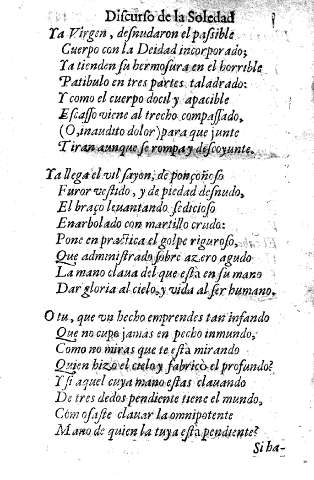 Discurso de la Soledad
Ya Virgen, desnudaron el passible
Cuerpo con la Deidad incorporado;
Ya tienden su hermosura en el horrible
Patibulo en tres partes taladrado:
Y como el cuerpo docil y apacible
Escasso viene al trecho compassado.
(O, inaudito dolor) para que junte
Tiran aunque se rompa y descoyunte.
Ya llega el vil sayon, de ponçoñoso
Furor vestido, y de piedad desnudo,
El braço leuantando sedicioso
Enarbolado con martillo crudo:
Pone en practica el golpe riguroso,
Que administrado sobre azero agudo
La mano claua del que està en su mano
Dar gloria al cielo, y vida al ser humano.
O tu, que un hecho emprendes tan infando
Que no cupo jamas en pecho inmundo,
Como no miras que te està mirando
Quien hizo el cielo y fabricò el profundo?
Y si aquel cuya mano estas clauando
De tres dedos pendiente tiene el mundo,
Còm osaste clauar la omnipotente
Mano de quien la tuya està pendiente?
Si ha-